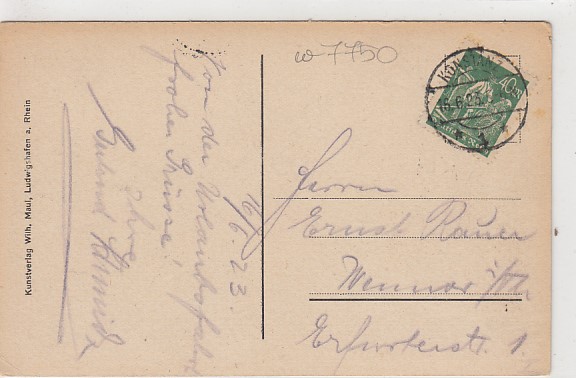 w 7750
KONSTANZ
16.6.23
1
40 M
16/6. 23.
Von der Urlaubsfahrt
frohe Grüsse!
Ihre
Schmidt
Herrn
Ernst Bauer
Weimar i/Th
Erfurterstr. 1.
Kunstverlag Wilh. Maul, Ludwigshafen a. Rhein